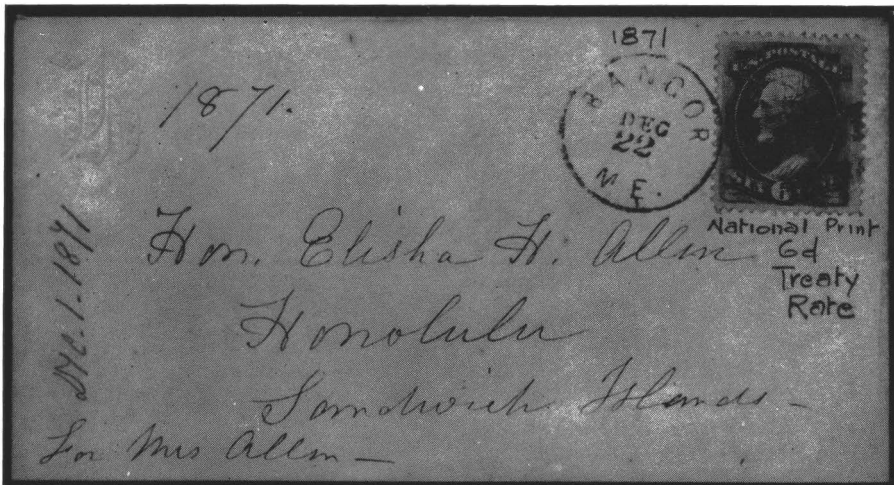 1871
1871.
BANGOR
DEC
22
ME.
U.S. POSTAGE
SIX
6
National Print
6d
Treaty
Rate
Hon. Elisha H. Allen
Honolulu
Sandwich Islands –
For Mrs Allen –